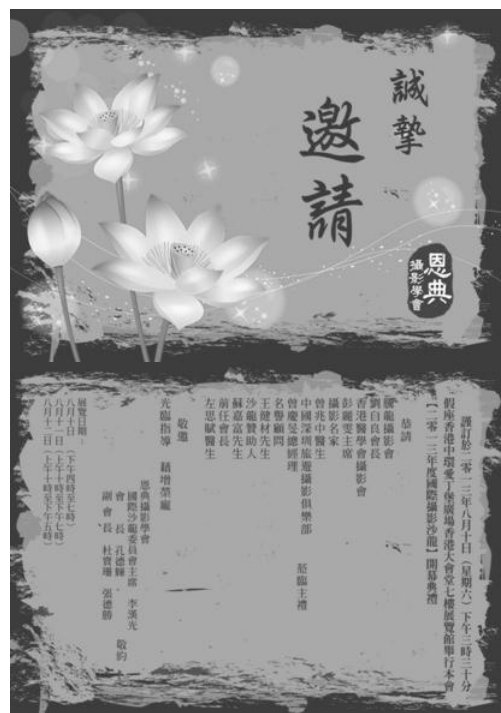 誠摯
邀請
恩典
攝影學會
謹訂於二零一三年八月十日（星期六）下午三時三十分
假座香港中環愛丁堡廣場香港大會堂七樓展覽館舉行本會
【二零一三年度國際攝影沙龍】開幕典禮
恭請
龍攝影會
劉自良會長
香港醫學會攝影會
彭麗雯主席
攝影名家
曾兆中醫生
中國深圳旅遊攝影俱樂部
曾慶旻總經理
蒞臨主禮
名譽顧問
王健材先生
沙龍贊助人
蘇嘉富先生
前任會長
左思賦醫生
敬邀
光臨指導 藉增榮寵
恩典攝影學會
國際沙龍委員會主席 李漢光
會 長 孔德輝
副 會 長 杜寶珊 張德勝
敬約
展覽日期：
八月十日（下午四時至七時）
八月十一日（上午十時至下午七時）
八月十二日（上午十時至下午五時）